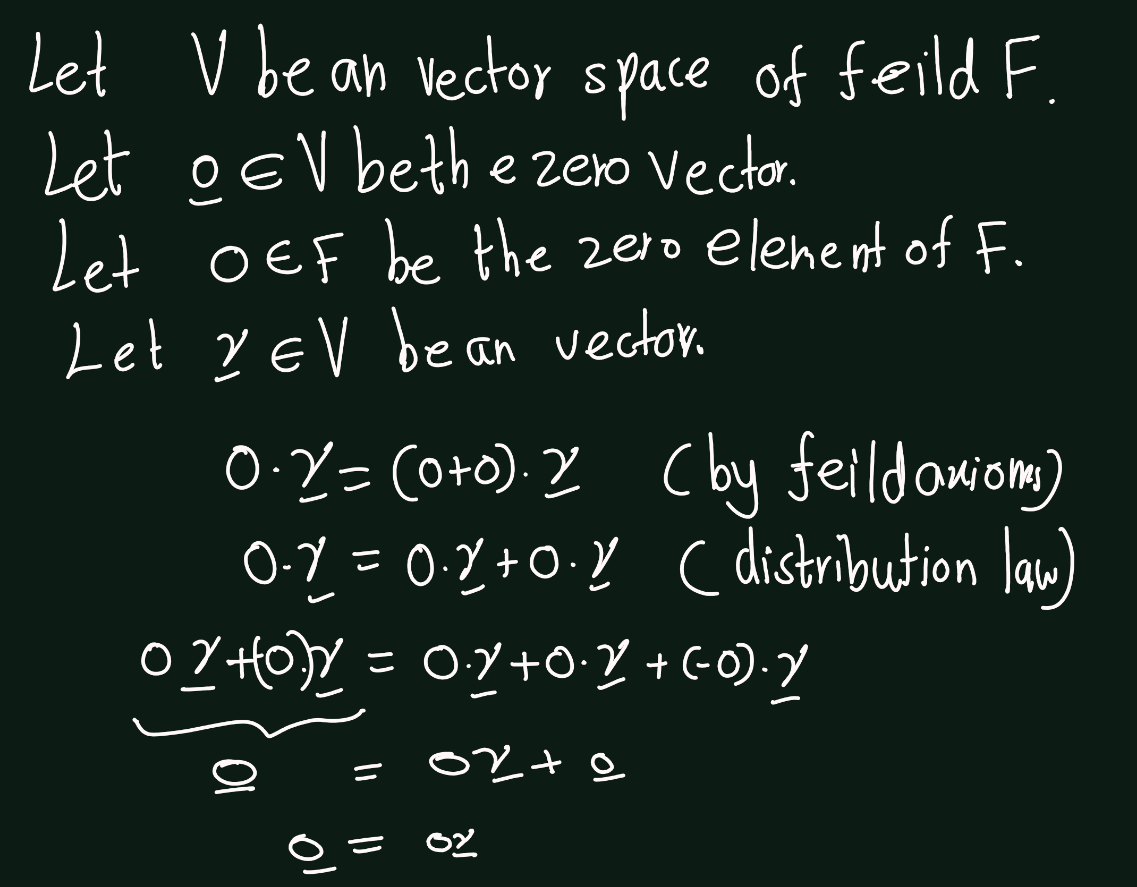 Let V be an vector space of feild F.
Let 0 ∈ V be the zero vector.
Let 0 ∈ F be the zero element of F.
Let v ∈ V be an vector.
0·v = (0+0)·v (by feild axioms)
0·v = 0·v + 0·v (distribution law)
0v + (-0)v = 0·v + 0·v + (-0)·v
0 = 0v + 0
0 = 0v